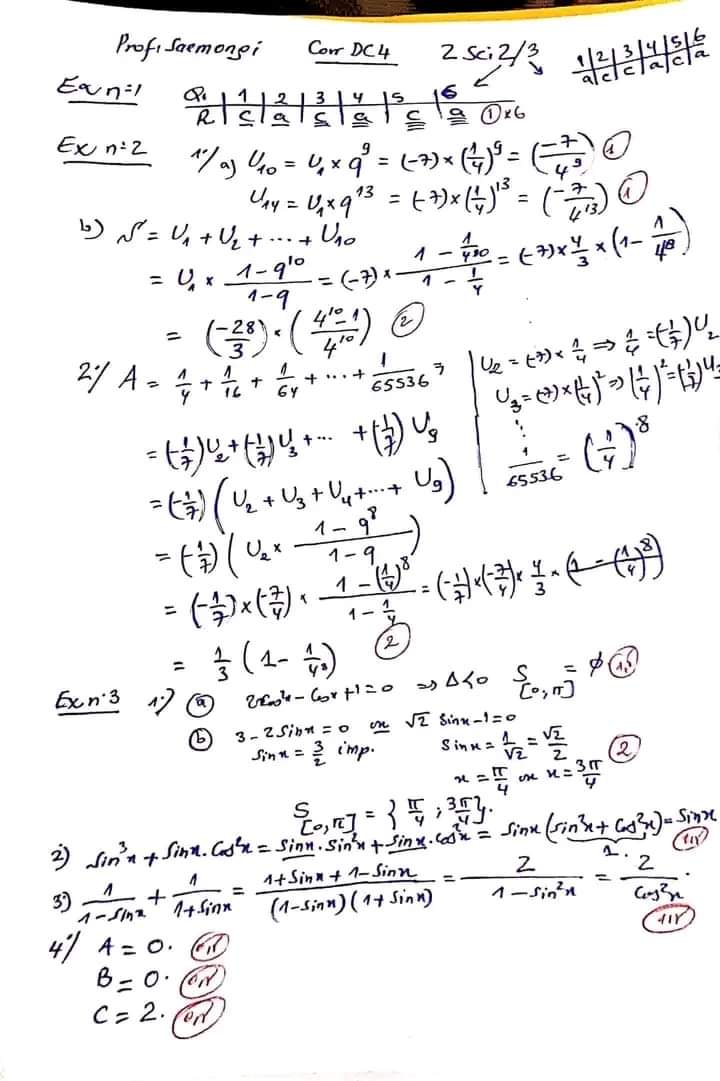 Prof: Saemongi Corr DC4 2 Sci 2/3
1 | 2 | 3 | 4 | 5 | 6
a | c | c | a | c | a
Ex n=1
Q: | 1 | 2 | 3 | 4 | 5 | 6
R | c | a | c | a | c | a ①x6
Ex n=2 1°/ a) U₁₀ = U₁ × q⁹ = (-7) × (1/4)⁹ = (-7/4⁹) ①
U₁₄ = U₁ × q¹³ = (-7) × (1/4)¹³ = (-7/4¹³) ①
b) S = U₁ + U₂ + ... + U₁₀
= U₁ × (1-q¹⁰)/(1-q) = (-7) × (1 - 1/4¹⁰)/(1 - 1/4) = (-7) × 4/3 × (1 - 1/4¹⁰)
= (-28/3) · ((4¹⁰-1)/4¹⁰) ②
2°/ A = 1/4 + 1/16 + 1/64 + ... + 1/65536
U₂ = (-7) × 1/4 ⇒ 1/4 = (-1/7) U₂
U₃ = (-7) × (1/4)² ⇒ (1/4)² = (-1/7) U₃
⋮
1/65536 = (1/4)⁸
= (-1/7) U₂ + (-1/7) U₃ + ... + (-1/7) U₉
= (-1/7) (U₂ + U₃ + U₄ + ... + U₉)
= (-1/7) (U₂ × (1-q⁸)/(1-q))
= (-1/7) × (-7/4) × (1 - (1/4)⁸)/(1 - 1/4) = (-1/7) × (-7/4) × 4/3 × (1 - (1/4)⁸)
= 1/3 (1 - 1/4⁸) ②
Ex n°3 1°/ ⓐ 2cos²x - cosx + 1 = 0 ⇒ Δ<0 S[0,π] = ∅ (1,5)
ⓑ 3 - 2 sinx = 0 ou √2 sinx - 1 = 0
sinx = 3/2 imp. sinx = 1/√2 = √2/2 ②
x = π/4 ou x = 3π/4
S[0,π] = {π/4 ; 3π/4}.
2) sin³x + sinx.cos²x = sinx.sin²x + sinx.cos²x = sinx (sin²x + cos²x) = sinx
1.
3°) 1/(1-sinx) + 1/(1+sinx) = (1+sinx+1-sinx)/((1-sinx)(1+sinx)) = 2/(1-sin²x) = 2/cos²x.
4°/ A = 0.
B = 0.
C = 2.